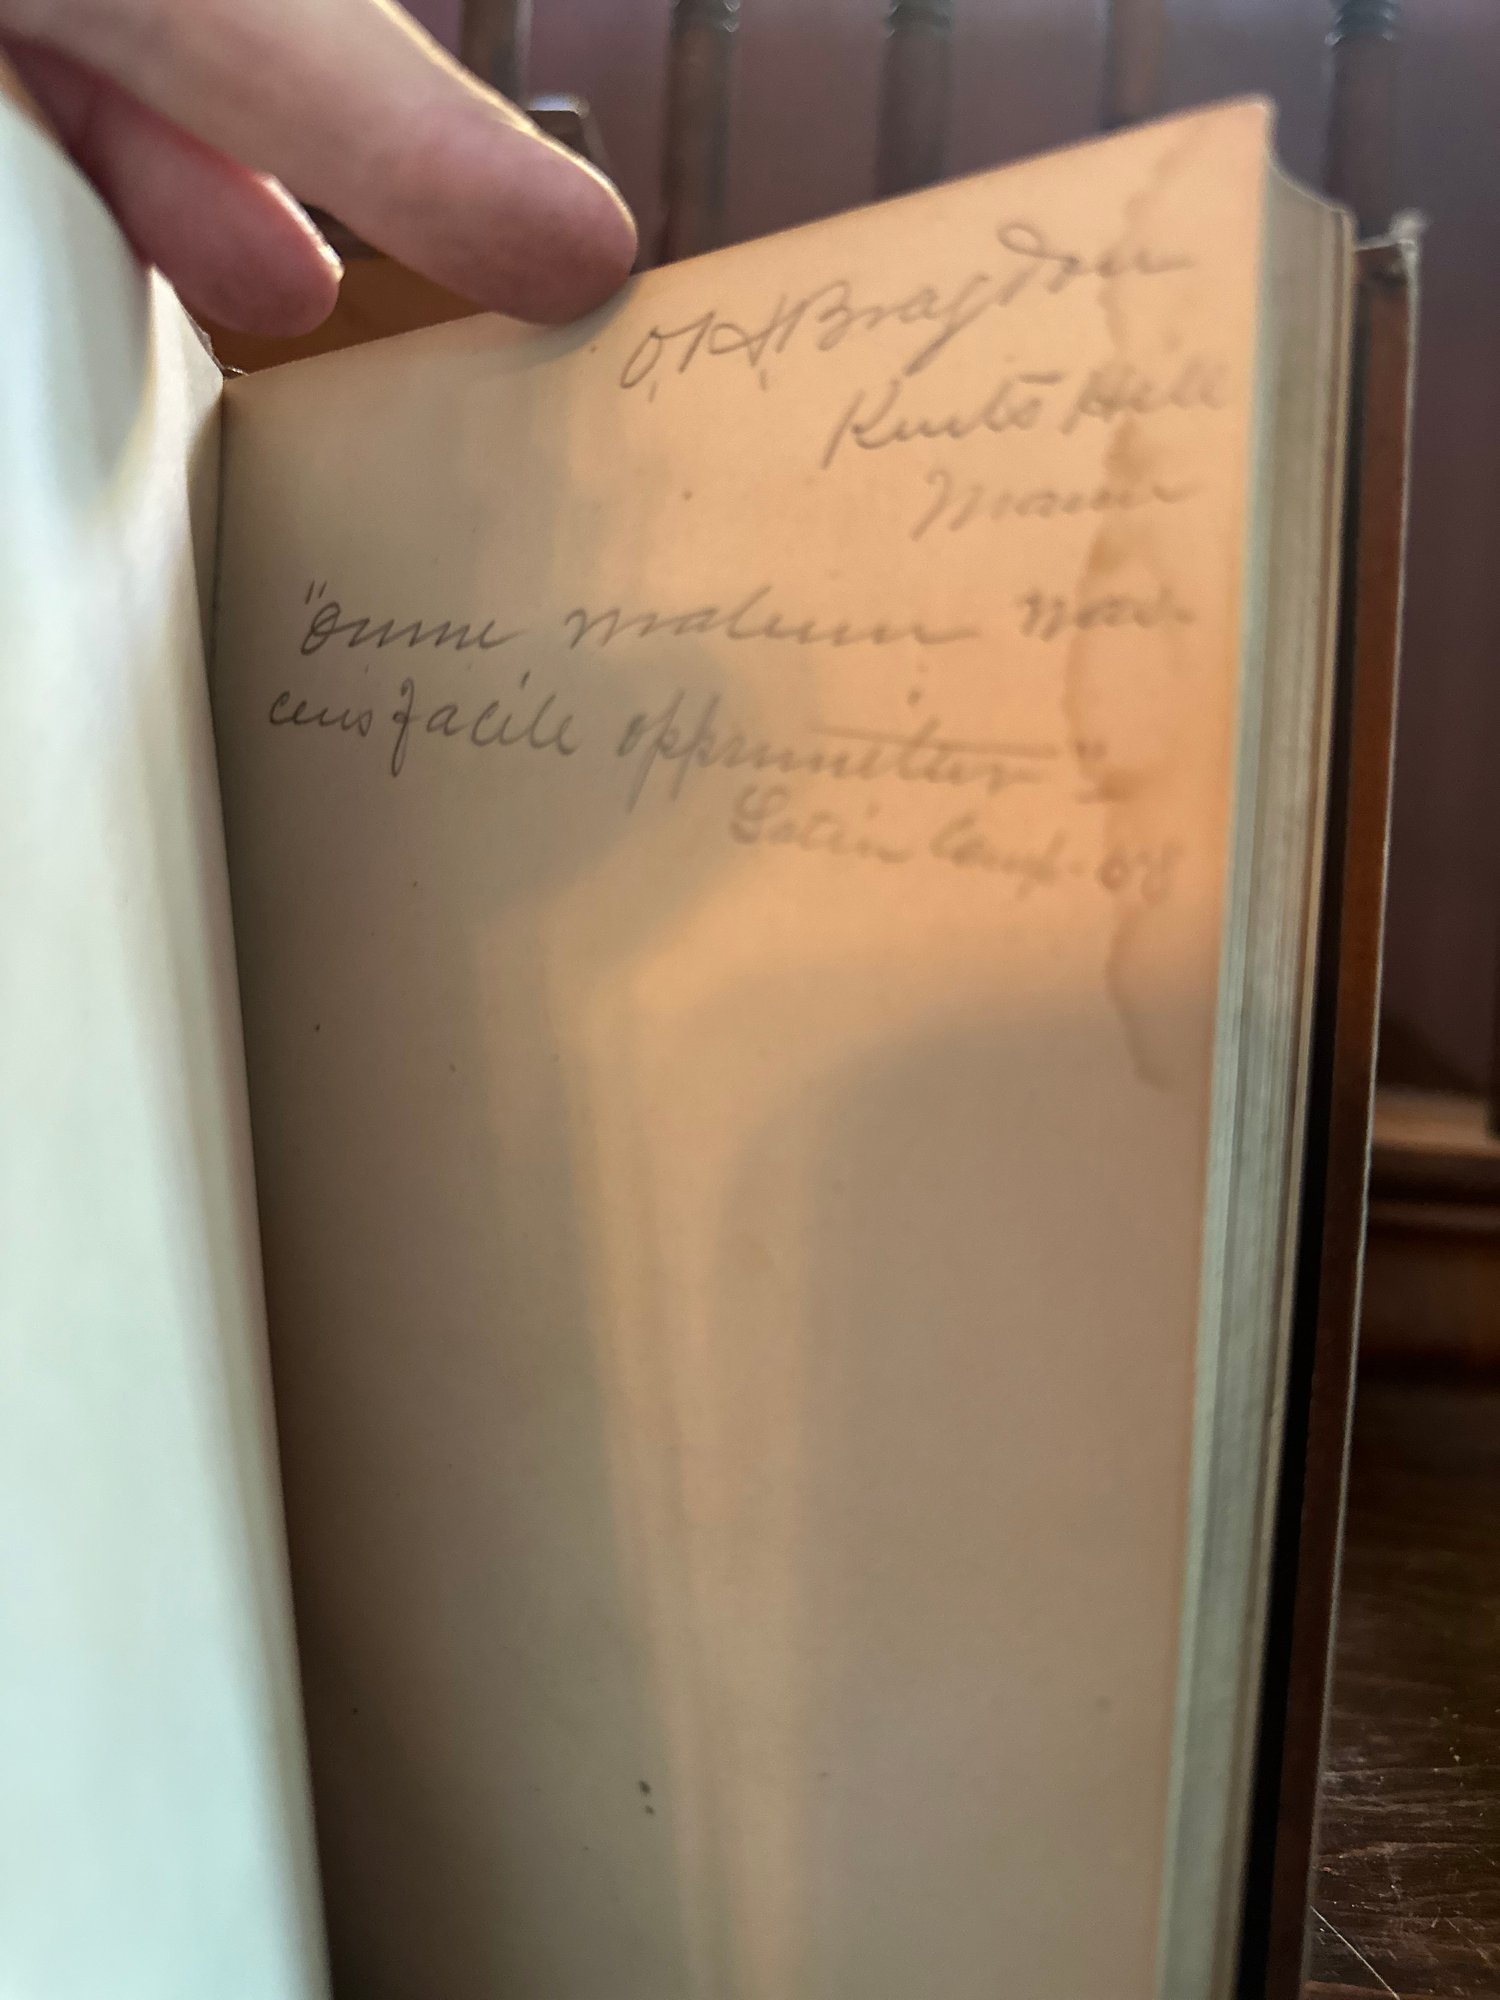 O. H. Bragdon
Kents Hill
Maine
"Omne malum nas-
cens facile opprimitur"
Latin Comp. 08